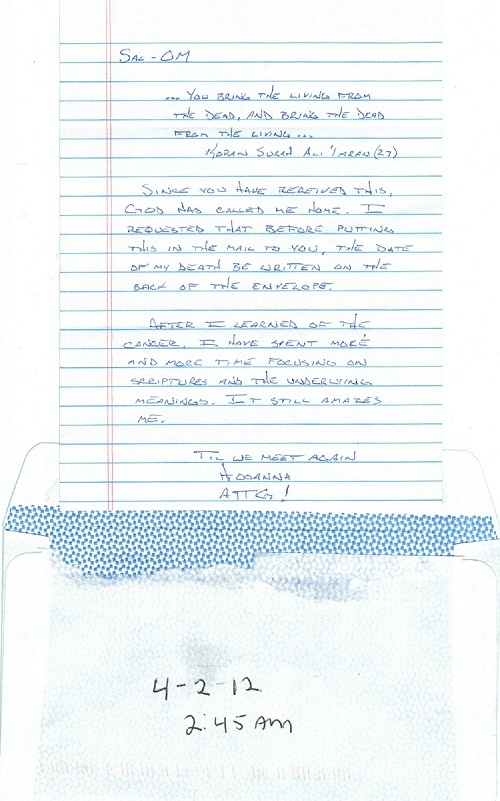 SAL-OM
... YOU BRING THE LIVING FROM
THE DEAD, AND BRING THE DEAD
FROM THE LIVING ...
KORAN SURAH ALI 'IMRAN (27)
SINCE YOU HAVE RECEIVED THIS,
GOD HAS CALLED ME HOME. I
REQUESTED THAT BEFORE PUTTING
THIS IN THE MAIL TO YOU, THE DATE
OF MY DEATH BE WRITTEN ON THE
BACK OF THE ENVELOPE.
AFTER I LEARNED OF THE
CANCER, I HAVE SPENT MORE
AND MORE TIME FOCUSING ON
SCRIPTURES AND THE UNDERLYING
MEANINGS. IT STILL AMAZES
ME.
TIL WE MEET AGAIN
HOSANNA
ATTKG!
4-2-12
2:45 AM